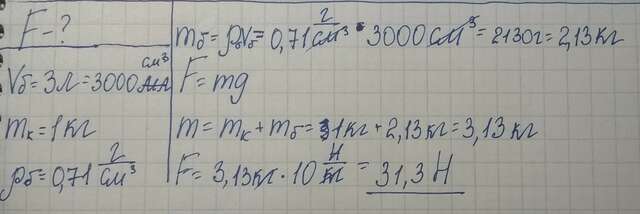 F-?
Vб=3л=3000 см³
mк=1кг
ρб=0,71 г/см³
mб=ρбVб=0,71 г/см³ · 3000 см³=2130г=2,13кг
F=mg
m=mк+mб=1кг+2,13кг=3,13кг
F=3,13кг·10 Н/кг=31,3 Н